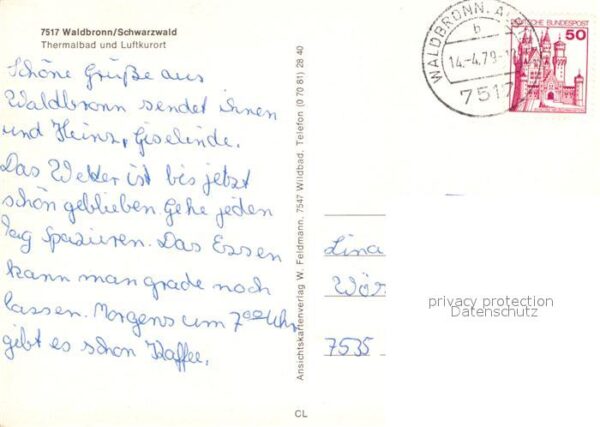 7517 Waldbronn/Schwarzwald
Thermalbad und Luftkurort
Schöne Grüße aus
Waldbronn sendet ihnen
und Heinz, Giselinde.
Das Wetter ist bis jetzt
schön geblieben Gehe jeden
Tag Spazieren. Das Essen
kann man grade noch
lassen. Morgens um 7 00 Uhr
gibt es schon Kaffee.
Ansichtskartenverlag W. Feldmann, 7547 Wildbad, Telefon (0 70 81) 28 40
CL
WALDBRONN
b
14.-4.79-1
7517
DEUTSCHE BUNDESPOST
50
Lina
Wö
7535
privacy protection
Datenschutz